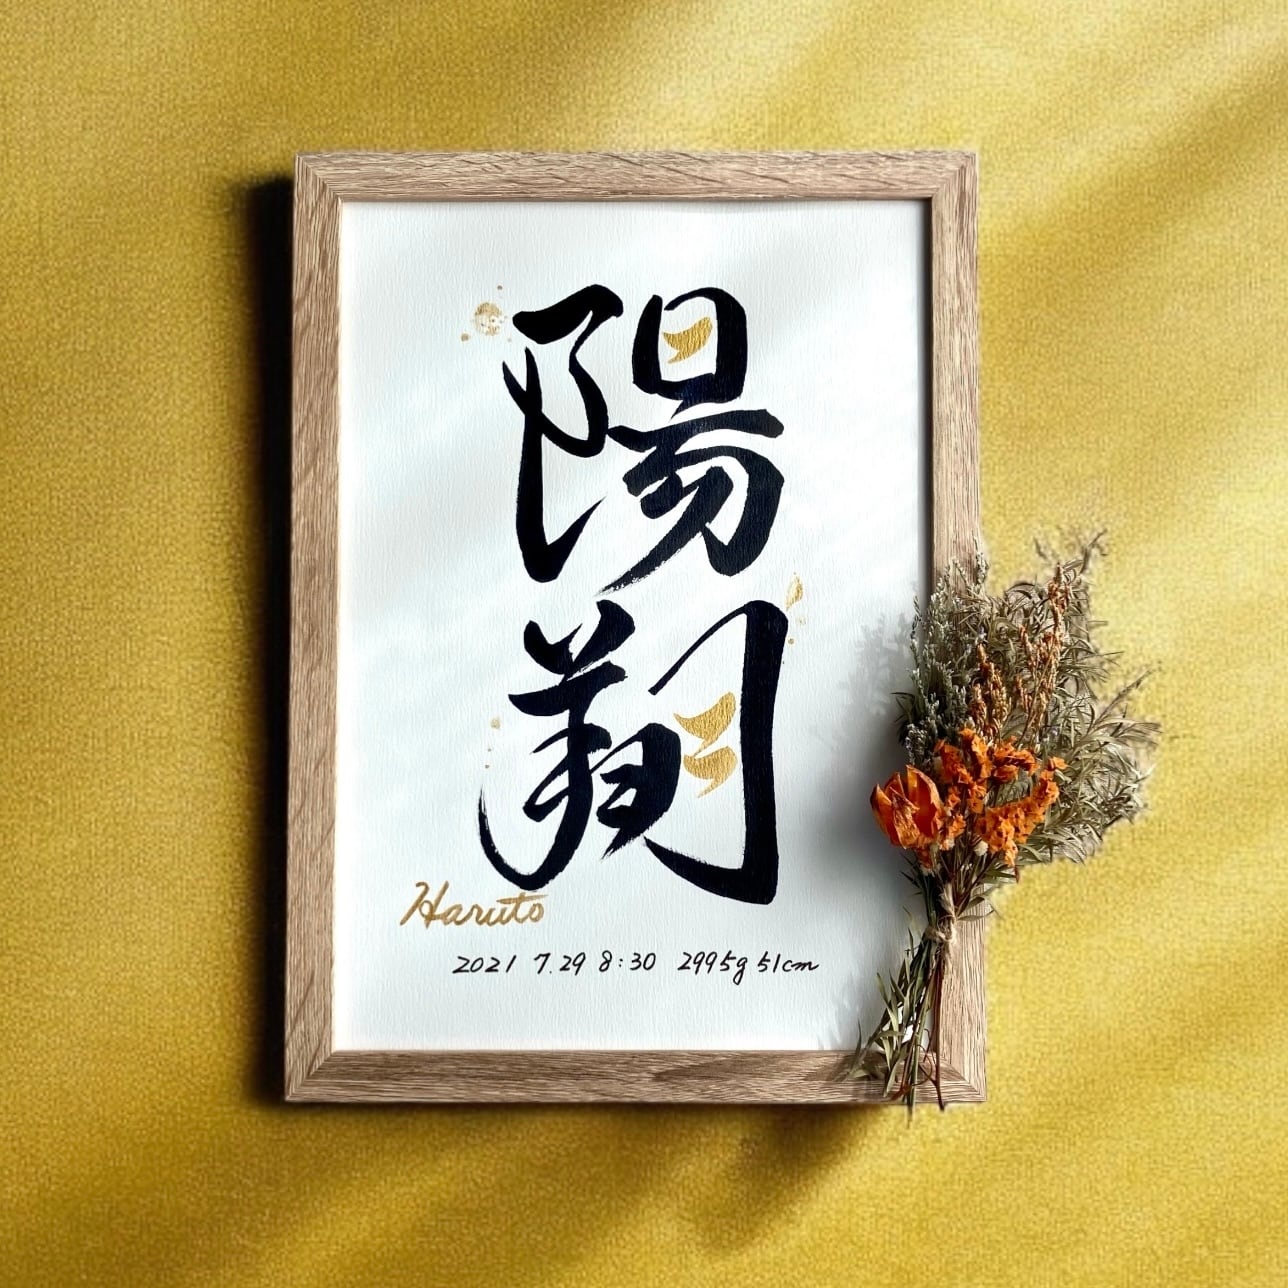 陽翔
Haruto
2021 7.29 8:30 2995g 51cm